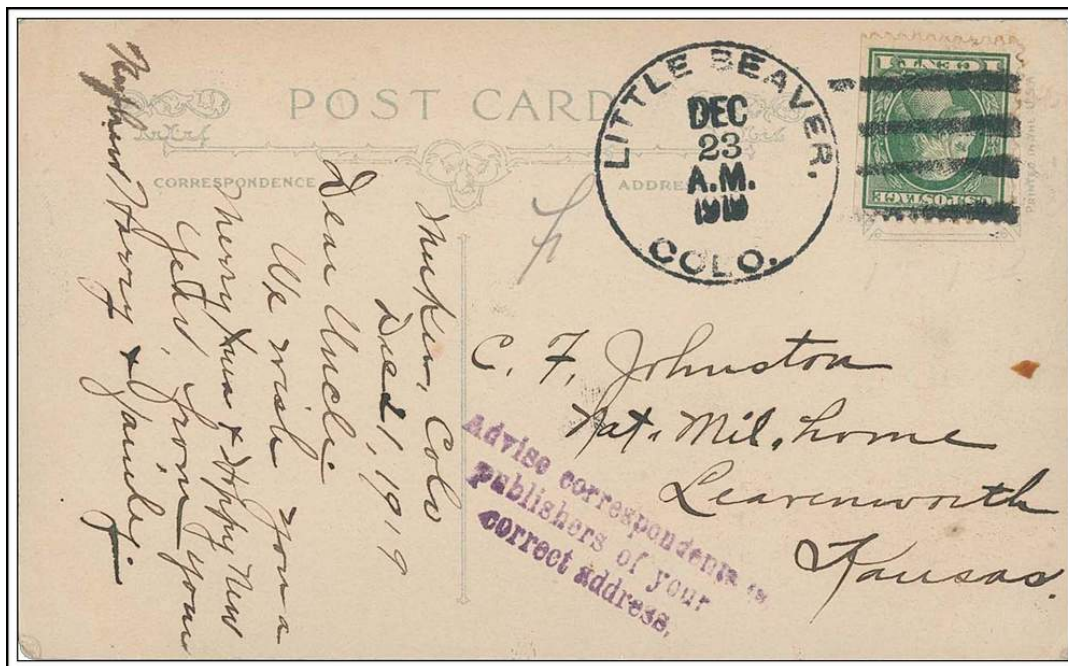 POST CARD
CORRESPONDENCE
ADDRE
LITTLE BEAVER.
DEC
23
A.M.
1919
COLO.
1 CENT 1
U.S. POSTAGE
Colo
1, 1919
Dear Uncle
We wish you a
Merry Xmas & Happy New
Year. From your
Nephew Harry & Family
C. F. Johnston
Nat. Mil. home
Leavenworth
Kansas.
Advise correspondents
publishers of your
correct address.